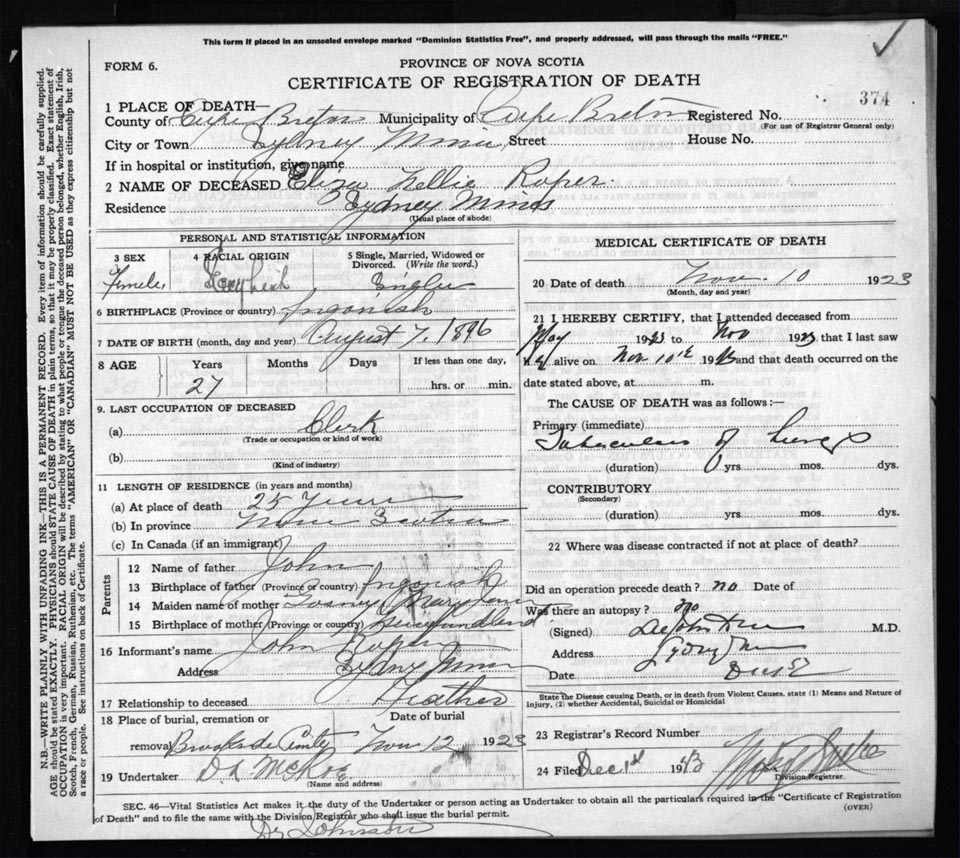 This form if placed in an unsealed envelope marked "Dominion Statistics Free", and properly addressed, will pass through the mails "FREE."
FORM 6.
PROVINCE OF NOVA SCOTIA
CERTIFICATE OF REGISTRATION OF DEATH
374
1 PLACE OF DEATH—
County of Cape Breton Municipality of Cape Breton Registered No.
(For use of Registrar General only)
City or Town Sydney Mines Street House No.
If in hospital or institution, give name
2 NAME OF DECEASED Eliza Nellie Roper
Residence Sydney Mines
(Usual place of abode)
PERSONAL AND STATISTICAL INFORMATION
3 SEX 4 RACIAL ORIGIN 5 Single, Married, Widowed or Divorced. (Write the word.)
Female Single
6 BIRTHPLACE (Province or country) Ingonish
7 DATE OF BIRTH (month, day and year) August 7, 1896
8 AGE Years Months Days If less than one day,
27 hrs. or min.
9. LAST OCCUPATION OF DECEASED
(a) Clerk
(Trade or occupation or kind of work)
(b)
(Kind of industry)
11 LENGTH OF RESIDENCE (in years and months)
(a) At place of death 25 Years
(b) In province Nova Scotia
(c) In Canada (if an immigrant)
Parents
12 Name of father John
13 Birthplace of father (Province or country) Ingonish
14 Maiden name of mother Mary Jane
15 Birthplace of mother (Province or country) Newfoundland
16 Informant's name John Roper
Address Sydney Mines
17 Relationship to deceased Father
18 Place of burial, cremation or removal Brookside Date of burial Nov 12 1923
19 Undertaker
(Name and address)
MEDICAL CERTIFICATE OF DEATH
20 Date of death Nov. 10 1923
(Month, day and year)
21 I HEREBY CERTIFY, that I attended deceased from
May 1923 to Nov 1923 that I last saw
h alive on Nov 10th 1923 and that death occurred on the
date stated above, at m.
The CAUSE OF DEATH was as follows:—
Primary (immediate)
Tuberculosis of Lungs
(duration) yrs. mos. dys.
CONTRIBUTORY
(Secondary)
(duration) yrs. mos. dys.
22 Where was disease contracted if not at place of death?
Did an operation precede death? no Date of
Was there an autopsy? no
(Signed) M.D.
Address Sydney Mines
Date
State the Disease causing Death, or in death from Violent Causes, state (1) Means and Nature of Injury, (2) whether Accidental, Suicidal or Homicidal
23 Registrar's Record Number
24 Filed Dec 1st 1923
Division Registrar.
SEC. 46—Vital Statistics Act makes it the duty of the Undertaker or person acting as Undertaker to obtain all the particulars required in the "Certificate of Registration
of Death" and to file the same with the Division Registrar who shall issue the burial permit. (OVER)
Dr Johnston
N.B.—WRITE PLAINLY WITH UNFADING INK—THIS IS A PERMANENT RECORD. Every item of information should be carefully supplied.
AGE should be stated EXACTLY. PHYSICIANS should STATE CAUSE OF DEATH in plain terms, so that it may be properly classified. Exact statement of
OCCUPATION is very important. RACIAL ORIGIN will be described by stating to what people or tongue the deceased person belonged, whether English, Irish,
Scotch, French, German, Russian, Ruthenian, etc. The terms "AMERICAN" OR "CANADIAN" MUST NOT BE USED as they express citizenship but not
a race or people. See instructions on back of Certificate.